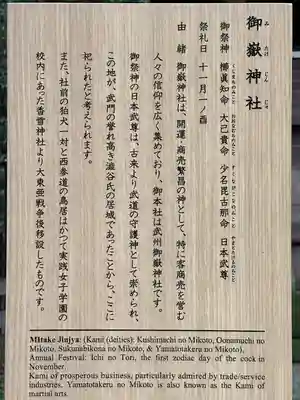 御嶽神社
み たけ じん じゃ
御祭神 櫛眞知命 大己貴命 少名毘古那命 日本武尊
祭礼日 十一月一ノ酉
由緒 御嶽神社は、開運・商売繁昌の神として、特に客商売を営む
人々の信仰を広く集めており、御本社は武州御嶽神社です。
御祭神の日本武尊は、古来より武道の守護神として崇められ、
この地が、武門の誉れ高き澁谷氏の居城であったことから、ここに
祀られたと考えられます。
また、社前の狛犬一対と西参道の鳥居はかつて実践女子学園の
校内にあった香雪神社より大東亜戦争後移設したものです。
Mitake Jinjya: (Kami (deities): Kushimachi no Mikoto, Oonamuchi no
Mikoto, Sukunabikona no Mikoto, & Yamatotakeru no Mikoto).
Annual Festival: Ichi no Tori, the first zodiac day of the cock in
November.
Kami of prosperous business, particularly admired by trade/service
industries. Yamatotakeru no Mikoto is also known as the Kami of
martial arts.